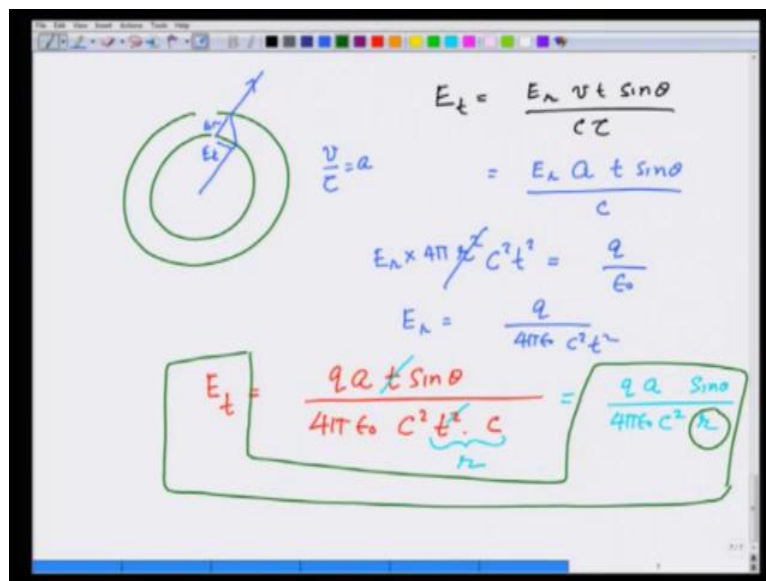 File Edit View Insert Actions Tools Help
E_t = E_r v t sinθ / c τ
Δr
E_t
v/τ = a
= E_r a t sinθ / c
E_r × 4π r² c² t² = q / ε₀
E_r = q / 4πε₀ c² t²
E_t = q a t sinθ / 4πε₀ c² t² . c = q a sinθ / 4πε₀ c² r
r